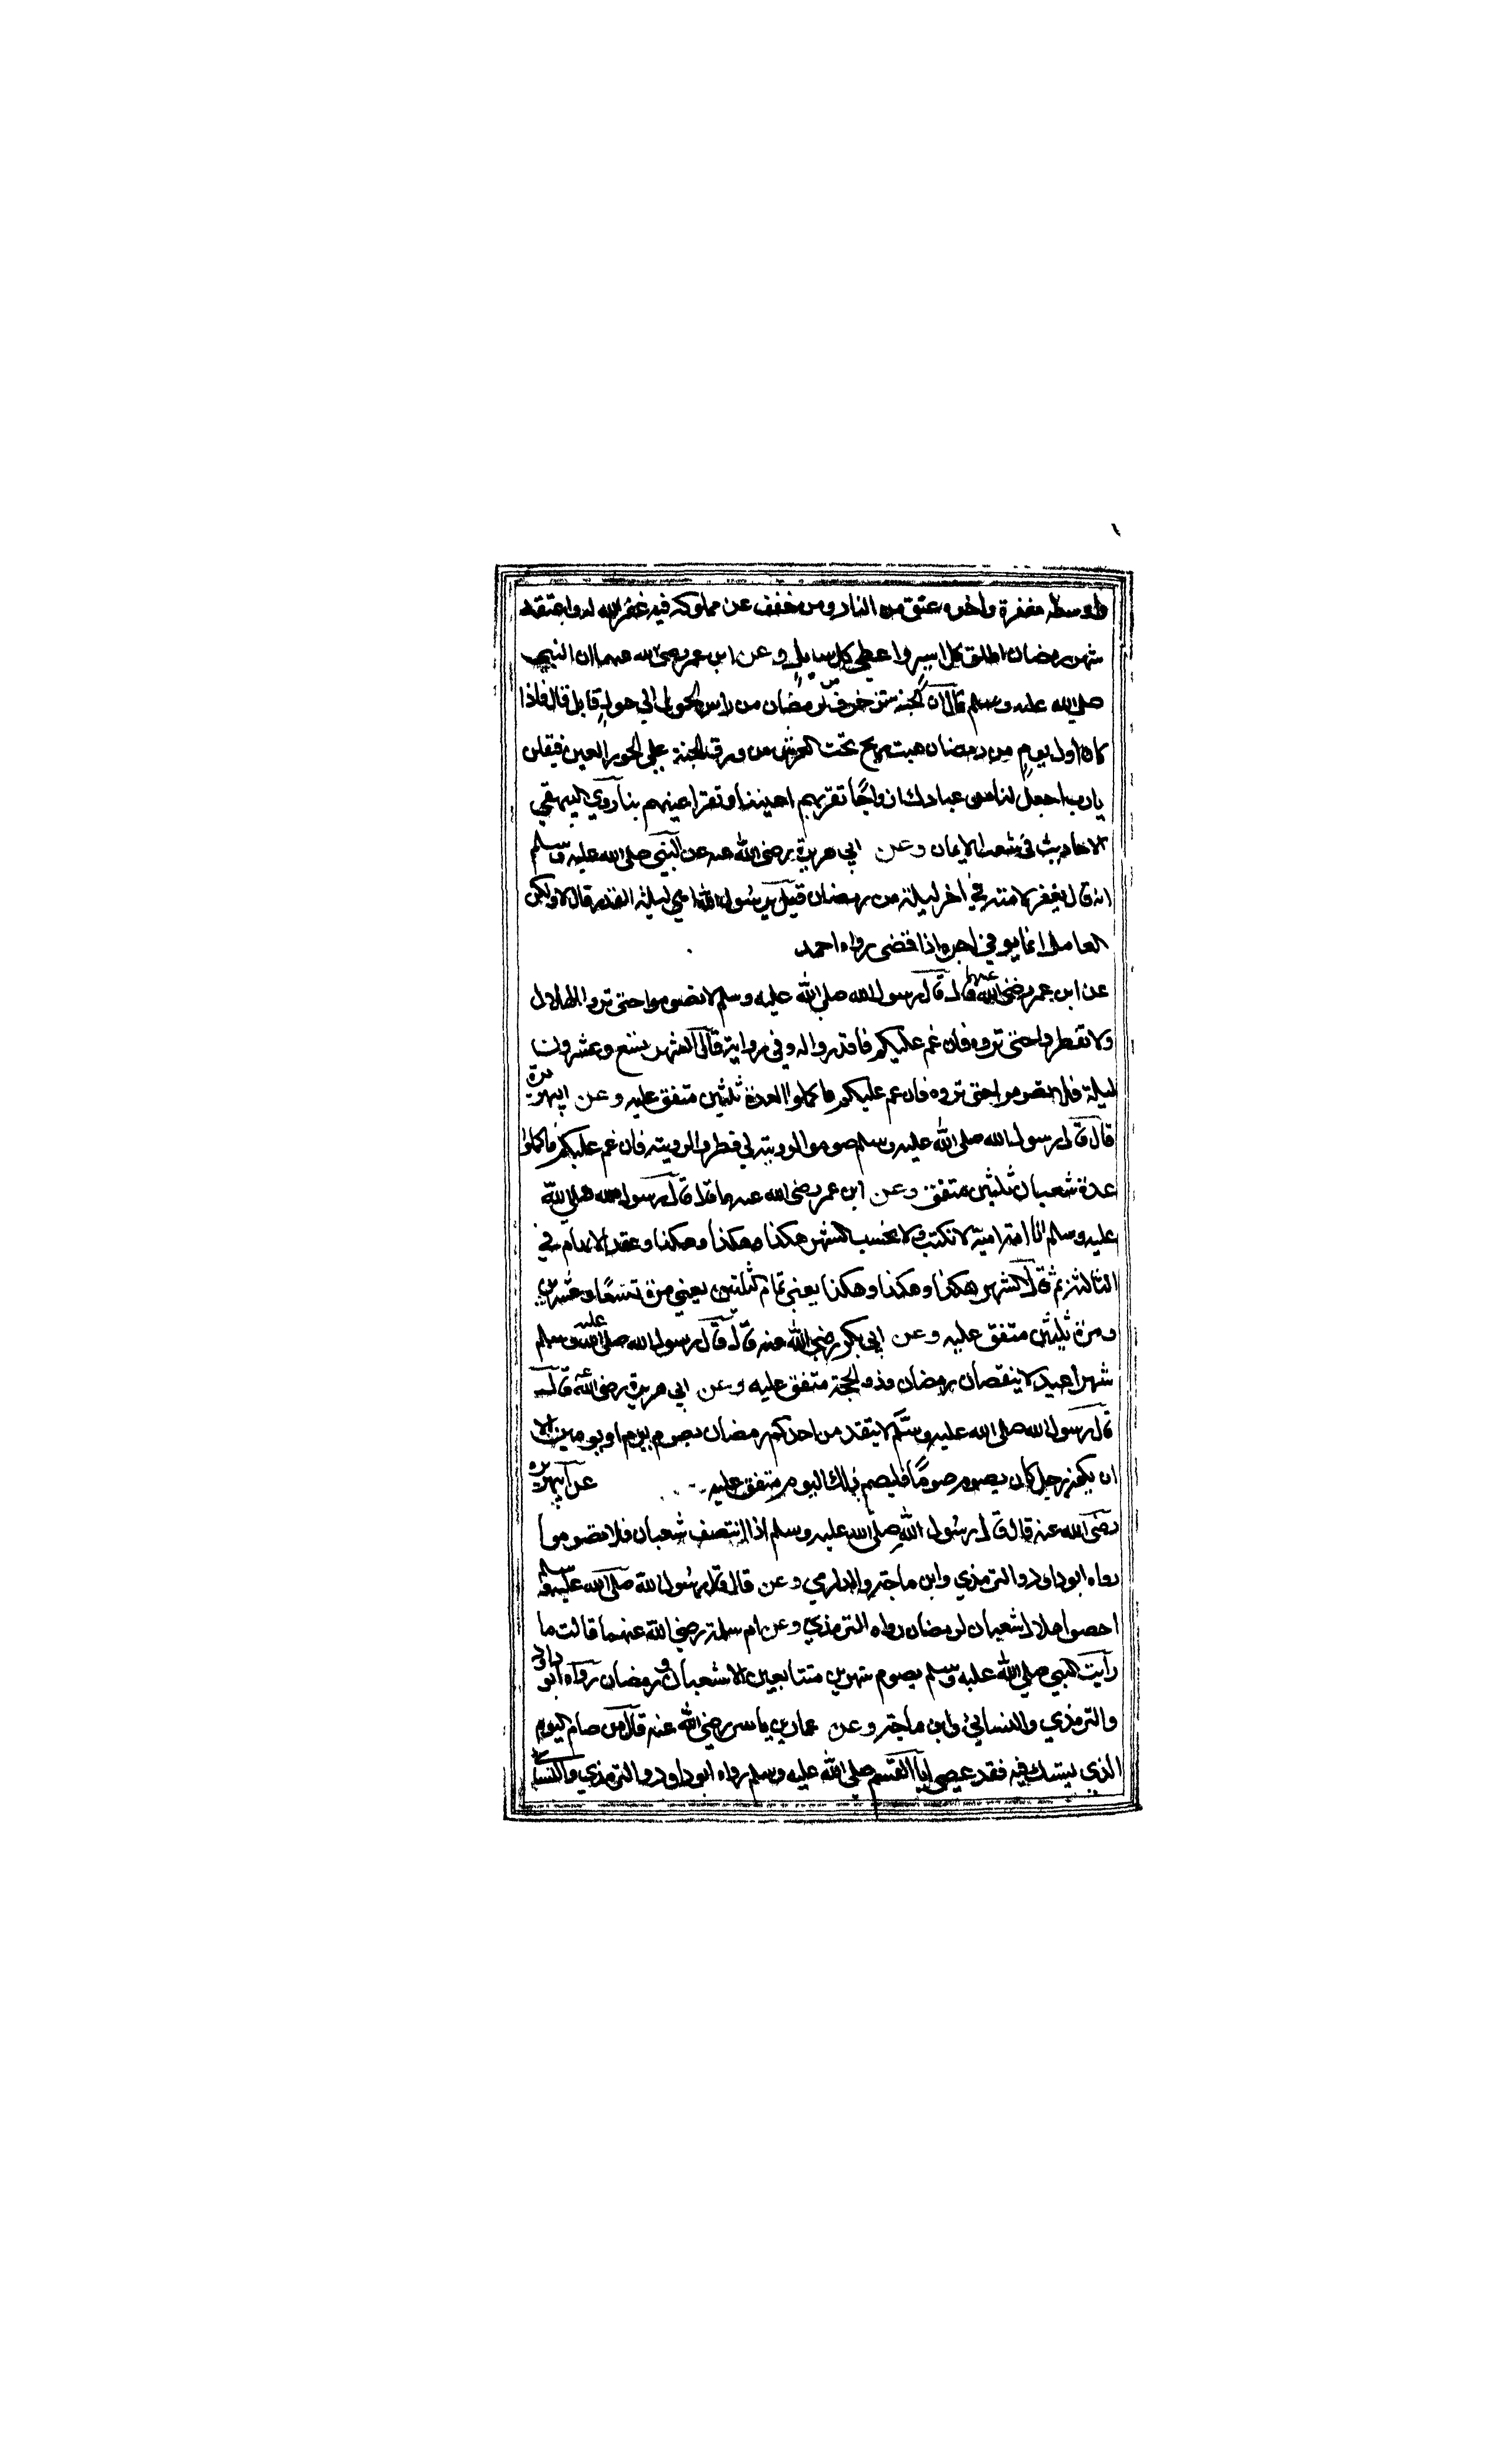 واوسطه مغفرة واخره عتق من النار ومن خفف عن مملوكه فيه غفر الله له واعتقه
شهر رمضان اطلق كل اسير واعطى كل سايل وعن ابن عمر رضى الله عنهما ان النبي
صلى الله عليه وسلم قال ان الجنة تزخرف لرمضان من راس الحول الي حول قابل قال فاذا
كان اول يوم من رمضان هبت ريح تحت العرش من ورق الجنة على الحور العين فيقلن
يارب اجعل لنا من عبادك ازواجًا تقر بهم اعيننا وتقر اعينهم بنا روي البيهقي
الاحاديث في شعب الايمان وعن ابي هريرة رضى الله عنه عن النبي صلى الله عليه وسلم
انه قال يغفر لامته في اخر ليلة من رمضان قيل يرسول الله اهي ليلة القدر قال لا ولكن
العامل انما يوفي اجره اذا قضى رواه احمد
عن ابن عمر رضى الله عنهما قال قال رسول الله صلى الله عليه وسلم لا تصوموا حتى تروا الهلال
ولا تفطروا حتى تروه فان غم عليكم فاقدروا له وفي رواية قال الشهر تسع وعشرون
ليلة فلا تصوموا حتى تروه فان غم عليكم فاكملوا العدة ثلثين متفق عليه وعن ابيهريرة
قال قال رسول الله صلى الله عليه وسلم صوموا لرويته وافطروا لرويته فان غم عليكم فاكملوا
عدة شعبان ثلثين متفق وعن ابن عمر رضى الله عنهما قال قال رسول الله صلى الله
عليه وسلم انا امة امية لا نكتب ولا نحسب الشهر هكذا وهكذا وهكذا وعقد الابهام في
الثالثة ثم قال الشهر هكذا وهكذا وهكذا يعني تمام الثلثين يعني مرة تسعًا وعشرين
ومرة ثلثين متفق عليه وعن ابي بكر رضى الله عنه قال قال رسول الله صلى الله عليه وسلم
شهرا عيد لا ينقصان رمضان وذو الحجة متفق عليه وعن ابي هريرة رضى الله عنه قال
قال رسول الله صلى الله عليه وسلم لا يتقدمن احدكم رمضان بصوم يوم او يومين الا
ان يكون رجل كان يصوم صومًا فليصم ذلك اليوم متفق عليه عن ابيهريره
رضى الله عنه قال قال رسول الله صلى الله عليه وسلم اذا انتصف شعبان فلا تصوموا
رواه ابو داود والترمذي وابن ماجة والدارمي وعن قال قال رسول الله صلى الله عليه وسلم
احصوا هلال شعبان لرمضان رواه الترمذي وعن ام سلمة رضى الله عنهما قالت ما
رايت النبي صلى الله عليه وسلم يصوم شهرين متتابعين الا شعبان ورمضان رواه ابو داود
والترمذي والنسائي وابن ماجة وعن عمار بن ياسر رضى الله عنه قال من صام اليوم
الذي يشك فيه فقد عصى ابا القسم صلى الله عليه وسلم رواه ابو داود والترمذي والنسائي